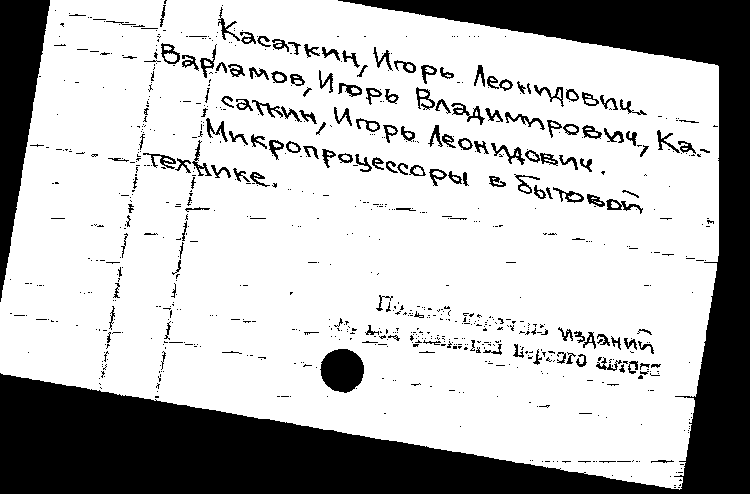 Касаткин, Игорь Леонидович.
Варламов, Игорь Владимирович, Ка-
саткин, Игорь Леонидович.
Микропроцессоры в бытовой
технике.
Полный перечень изданий
под фамилией первого автора